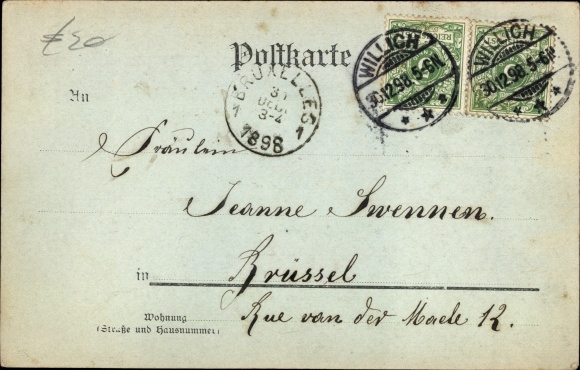 £20
Postkarte
WILLICH
30.12.98.5-6N.
WILLICH
30.12.98.5-6N.
BRUXELLES 1
31
DEC
3-4
1898
An
Fräulein
Jeanne Swennen.
in Brüssel
Wohnung
(Straße und Hausnummer)
Rue van der Maele 12.